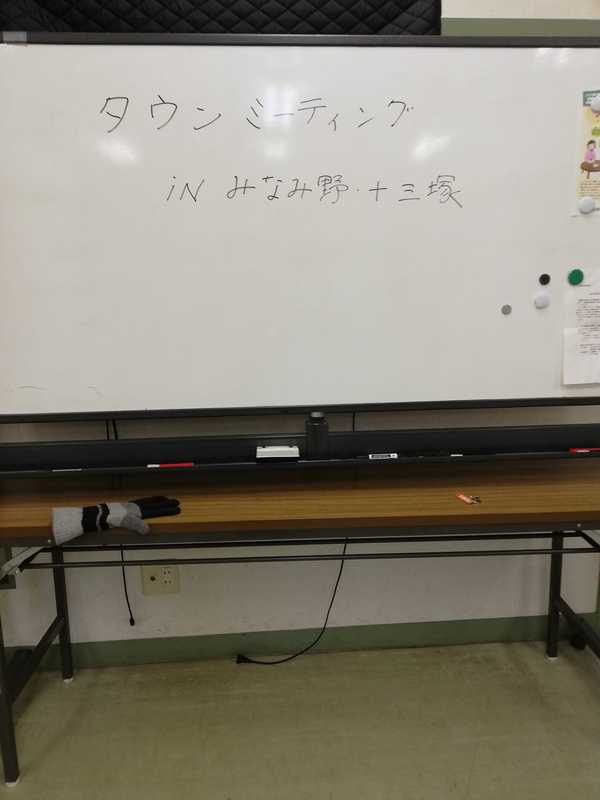 タウンミーティング
iN みなみ野・十三塚